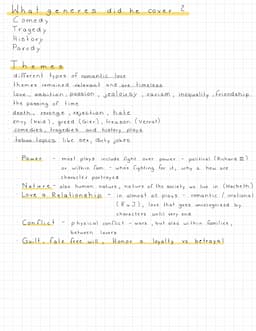 What generes did he cover ?
Comedy
Tragedy
History
Parody
Themes
different types of romantic love
themes remained relevant and are timeless
love, ambition, passion, jealousy, racism, inequality, friendship
the passing of time
death, revenge, rejection, hate
envy (Neid), greed (Gier), treason (Verrat)
comedies, tragedies and history plays
taboo topics like sex, dirty jokes
Power - most plays include fight over power - political (Richard III)
or within fam. - when fighting for it, why & how are
character portrayed
Nature - also human nature, nature of the society we live in (Macbeth)
Love & Relationship - in almost all plays - romantic / irrational
(R&J), love that goes unrecognised by
characters until very end
Conflict - physical conflict - wars, but also within families,
between lovers
Guilt, fate free will, Honor & loyalty vs betrayal